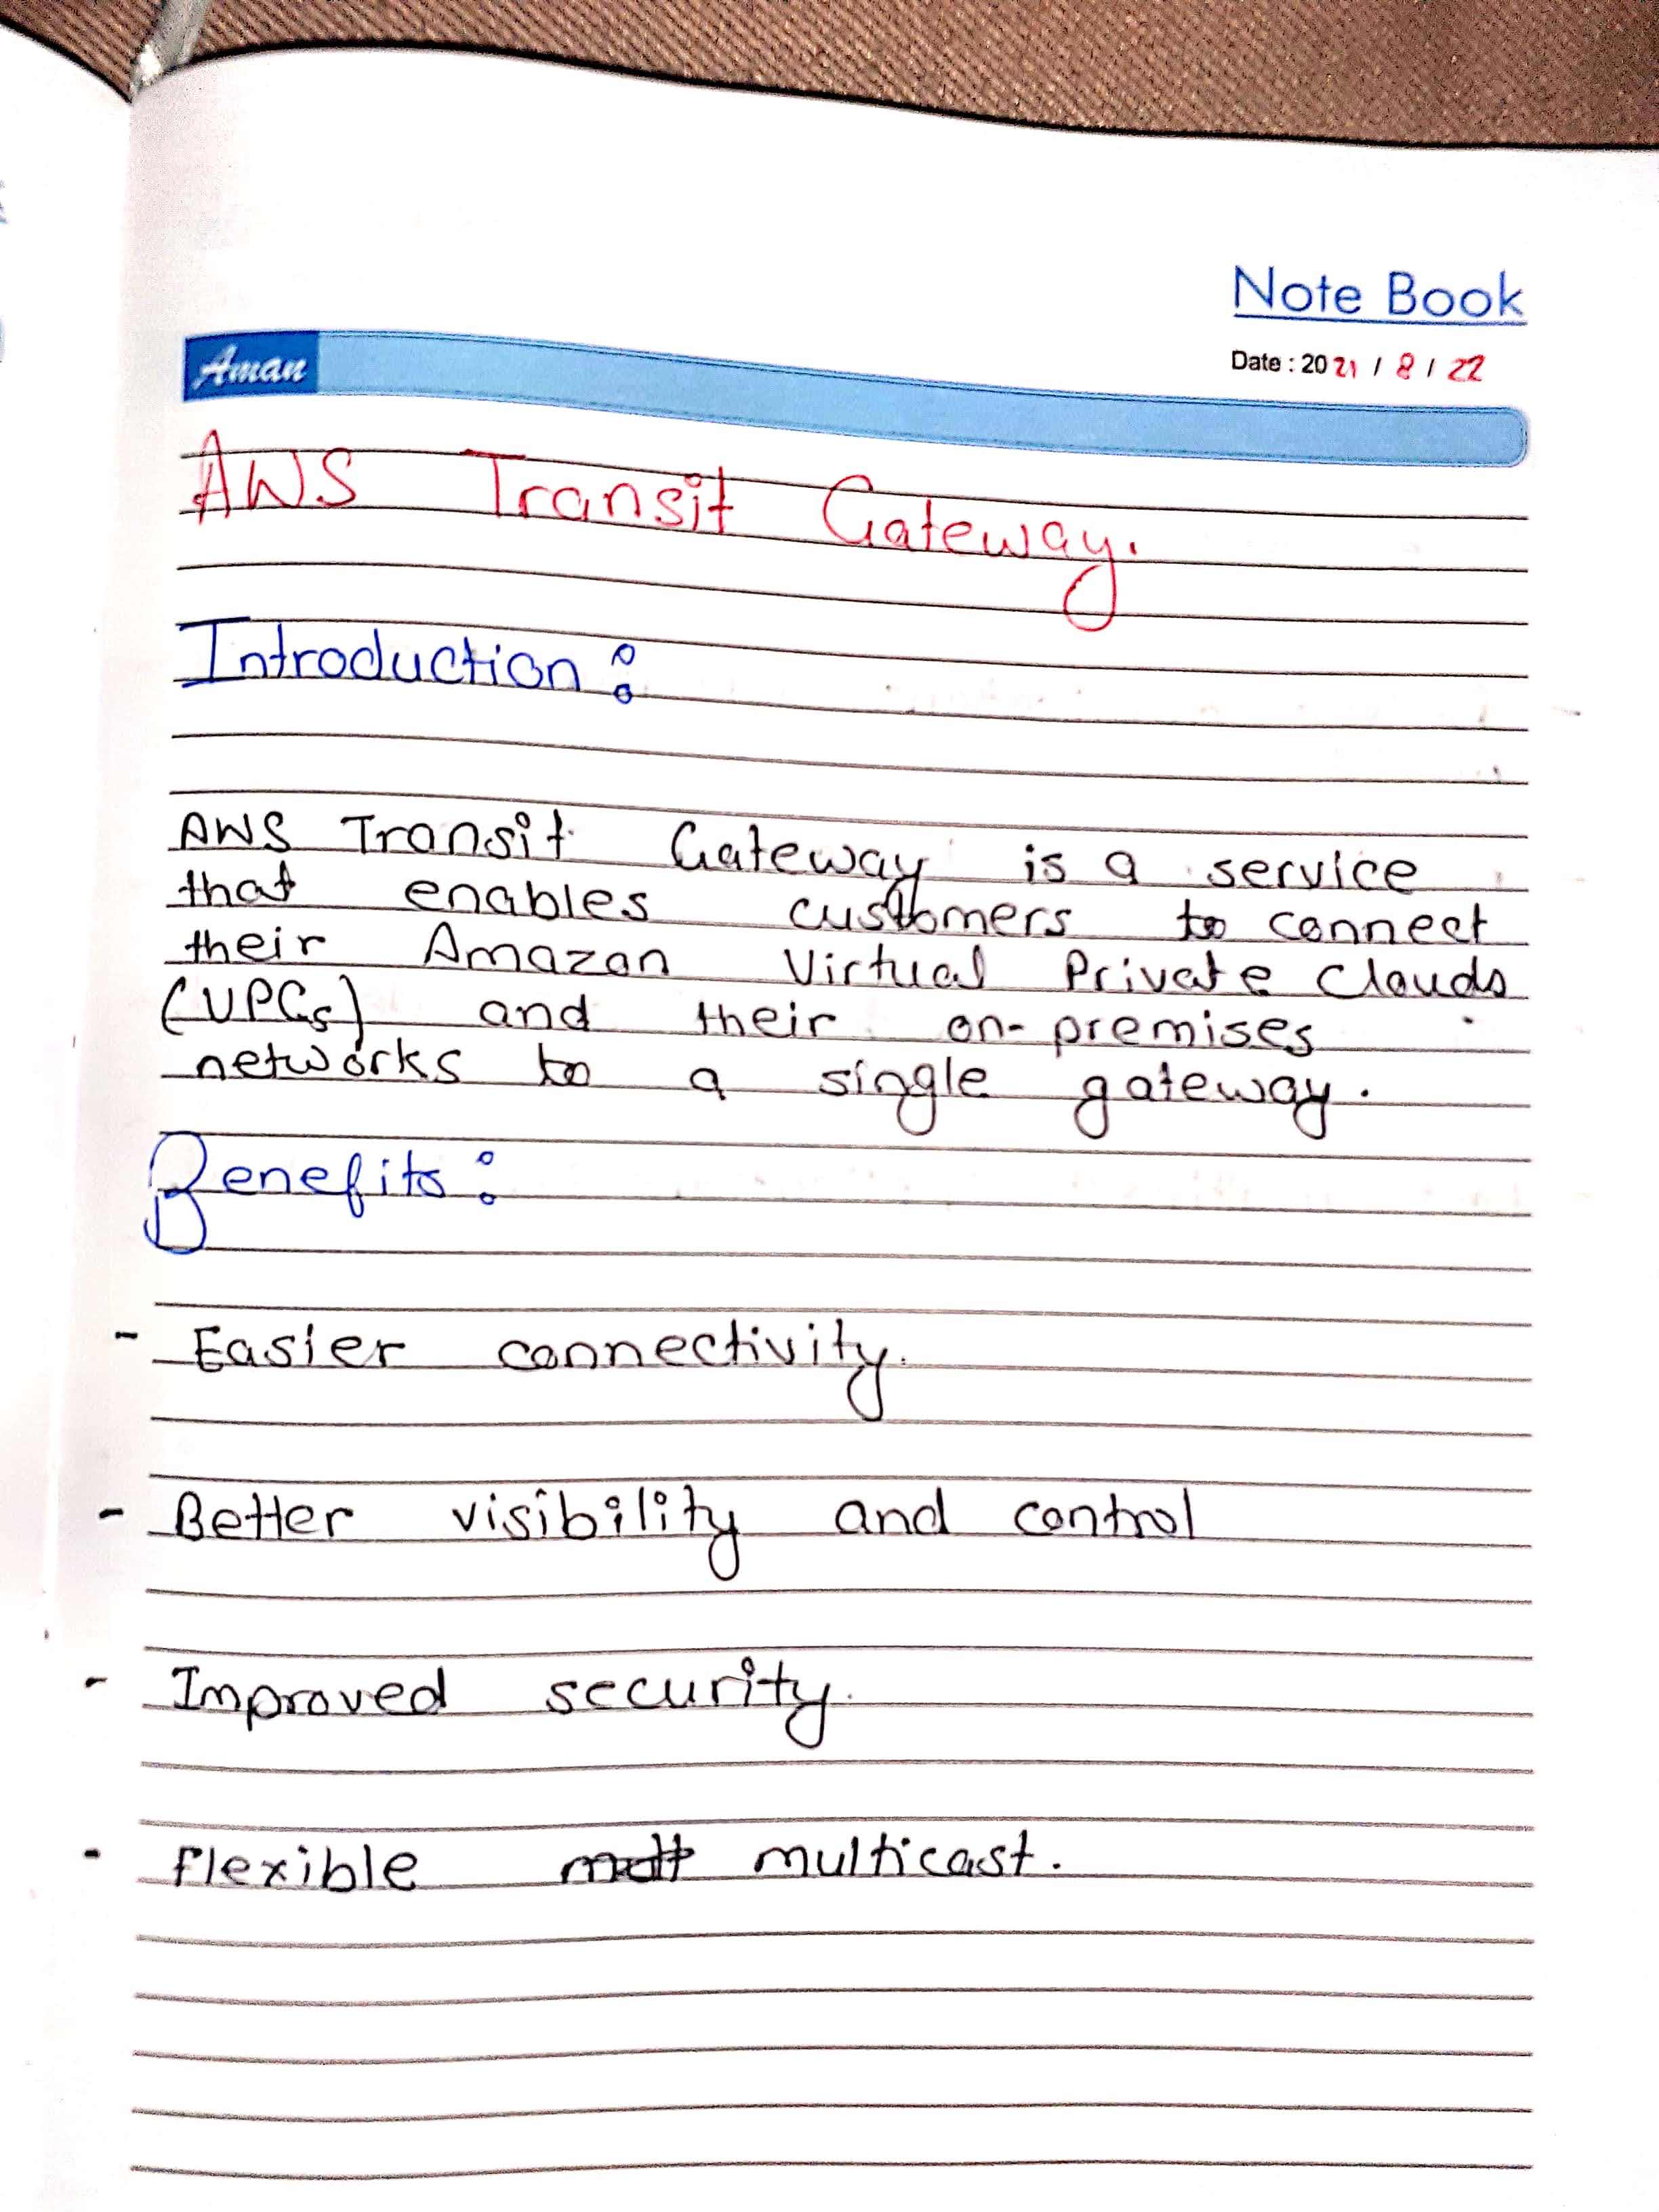 Note Book
Aman
Date : 2021 / 8 / 22
AWS Transit Gateway.
Introduction :
AWS Transit Gateway is a service
that enables customers to connect
their Amazon Virtual Private Clouds
(VPCs) and their on-premises
networks to a single gateway.
Benefits :
- Easier connectivity.
- Better visibility and control
- Improved security.
- Flexible multicast.